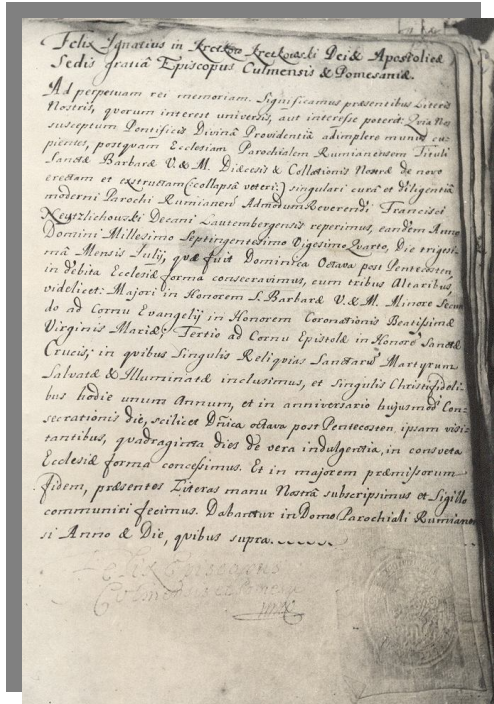 Felix Ignatius in Kretkow Kretkowski Dei & Apostolicæ
Sedis gratiâ Episcopus Culmensis & Pomesaniæ.
Ad perpetuam rei memoriam. Significamus præsentibus Literis
Nostris, quorum interest universis, aut interesse poterit: Quia Nos
susceptum Pontificis Divinâ Providentiâ adimplere munus cu-
pientes, postquam Ecclesiam Parochialem Rumianensem Tituli
Sanctæ Barbaræ V. & M. Diæcesis & Collationis Nostræ de novo
erectam et extructam (collapsâ veteri) singulari curâ et diligentiâ
moderni Parochi Rumianen: Admodum Reverendi Francisci
Decani Lautembergensis reperimus, eandem Anno
Domini Millesimo Septingentesimo Vigesimo Quarto, Die trigesi-
mâ Mensis Iulij, quæ fuit Dominica Octava post Pentecosten,
in debita Ecclesiæ forma consecravimus, cum tribus Altaribus,
videlicet: Majori in Honorem S. Barbaræ V. & M. Minore Secun
do ad Cornu Evangelij in Honorem Coronationis Beatissimæ
Virginis Mariæ; Tertio ad Cornu Epistolæ in Honorē Sanctæ
Crucis; in quibus Singulis Reliquias Sanctarū Martyrum
Salvatæ & Illuminatæ inclusimus, et Singulis Christifideli-
bus hodie unum Annum, et in anniversario hujusmodi Con-
secrationis die, scilicet Dn̄ica octava post Pentecosten, ipsam visi-
tantibus, quadraginta dies de vera indulgentia, in consveta
Ecclesiæ forma concessimus. Et in majorem præmissorum
fidem, præsentes Literas manu Nostrâ subscripsimus et Sigillo
communiri fecimus. Dabantur in Domo Parochiali Rumianen
si Anno & Die, quibus supra.
Felix Episcopus
Culmensis et